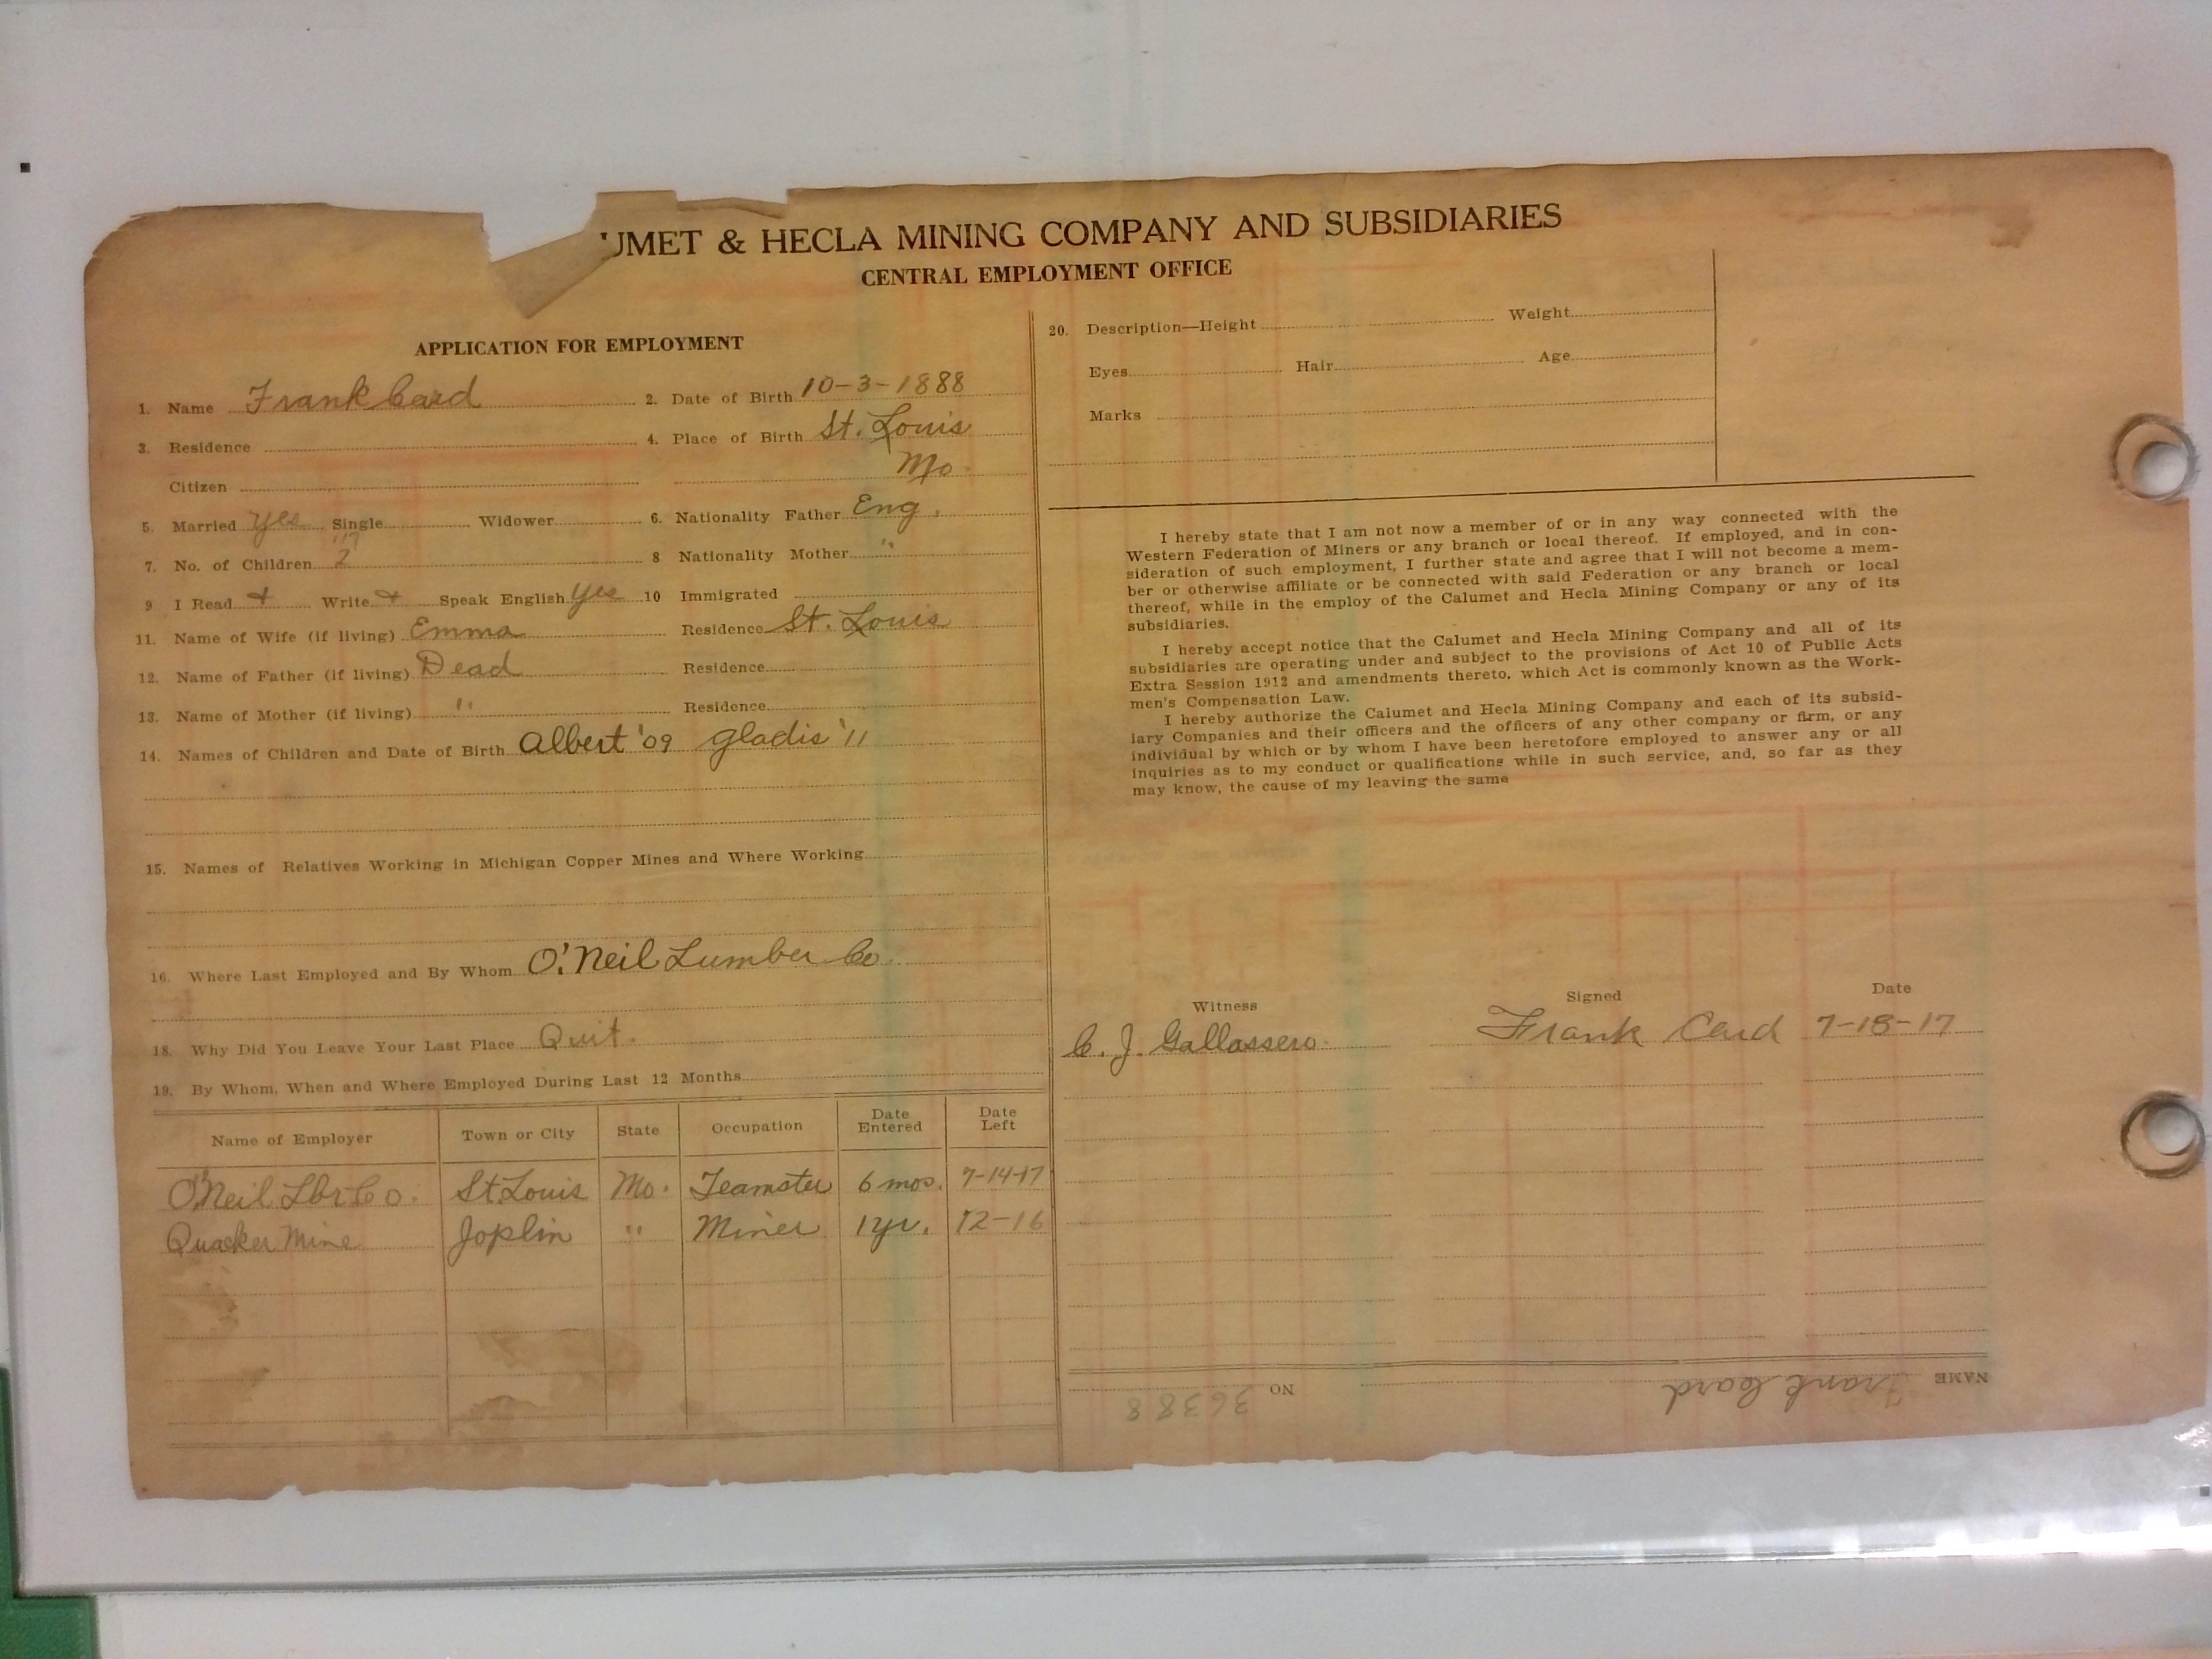 UMET & HECLA MINING COMPANY AND SUBSIDIARIES
CENTRAL EMPLOYMENT OFFICE
APPLICATION FOR EMPLOYMENT
1. Name Frank Card 2. Date of Birth 10-3-1888
3. Residence 4. Place of Birth St. Louis
Citizen Mo.
5. Married yes Single Widower 6. Nationality Father Eng.
7. No. of Children 2 8 Nationality Mother "
9 I Read + Write + Speak English yes 10 Immigrated
11. Name of Wife (if living) Emma Residence St. Louis
12. Name of Father (if living) Dead Residence
13. Name of Mother (if living) " Residence
14. Names of Children and Date of Birth Albert '09 Gladis '11
15. Names of Relatives Working in Michigan Copper Mines and Where Working
16. Where Last Employed and By Whom O'Neil Lumber Co
18. Why Did You Leave Your Last Place Quit.
19. By Whom, When and Where Employed During Last 12 Months
Name of Employer Town or City State Occupation Date Entered Date Left
O'Neil Lbr Co. St. Louis Mo. Teamster 6 mos. 7-14-17
Quacker Mine Joplin " Miner 1 yr. 12-16
20. Description—Height Weight
Eyes Hair Age
Marks
I hereby state that I am not now a member of or in any way connected with the
Western Federation of Miners or any branch or local thereof. If employed, and in con-
sideration of such employment, I further state and agree that I will not become a mem-
ber or otherwise affiliate or be connected with said Federation or any branch or local
thereof, while in the employ of the Calumet and Hecla Mining Company or any of its
subsidiaries.
I hereby accept notice that the Calumet and Hecla Mining Company and all of its
subsidiaries are operating under and subject to the provisions of Act 10 of Public Acts
Extra Session 1912 and amendments thereto, which Act is commonly known as the Work-
men's Compensation Law.
I hereby authorize the Calumet and Hecla Mining Company and each of its subsid-
iary Companies and their officers and the officers of any other company or firm, or any
individual by which or by whom I have been heretofore employed to answer any or all
inquiries as to my conduct or qualifications while in such service, and, so far as they
may know, the cause of my leaving the same
Witness Signed Date
C. J. Gallassero. Frank Card 7-18-17
NAME Frank Card NO 36388